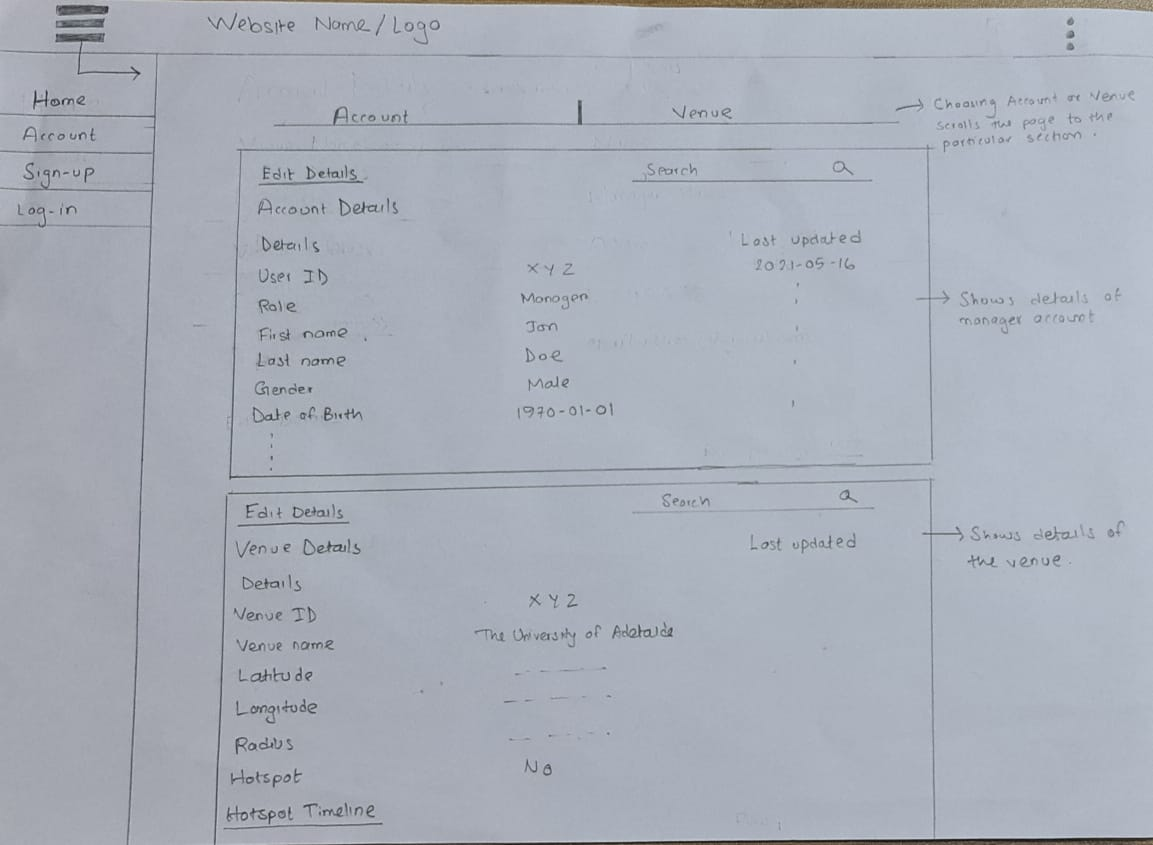 Website Name/Logo
Home
Account
Sign-up
Log-in
Account | Venue
→ Choosing Account or Venue
scrolls the page to the
particular section.
Edit Details
Search
Account Details
Details
Last updated
User ID
XYZ
2021-05-16
Role
Manager
First name
Jon
Last name
Doe
Gender
Male
Date of Birth
1970-01-01
→ Shows details of
manager account
Edit Details
Search
Venue Details
Last updated
Details
Venue ID
XYZ
Venue name
The University of Adelaide
Latitude
Longitude
Radius
Hotspot
No
Hotspot Timeline
→ Shows details of
the venue.